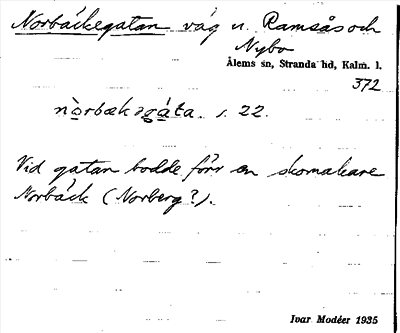 Norbäckegatan väg n. Ramsås och
Nybo
Ålems sn, Stranda hd, Kalm. l.
372
nòrbækəgáta s. 22.
Vid gatan bodde förr en skomakare
Norbäck (Norberg?).
Ivar Modéer 1935